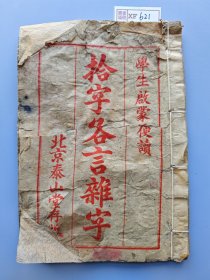 學生啟蒙便讀
拾字各言雜字
北京泰山堂存
XF 621